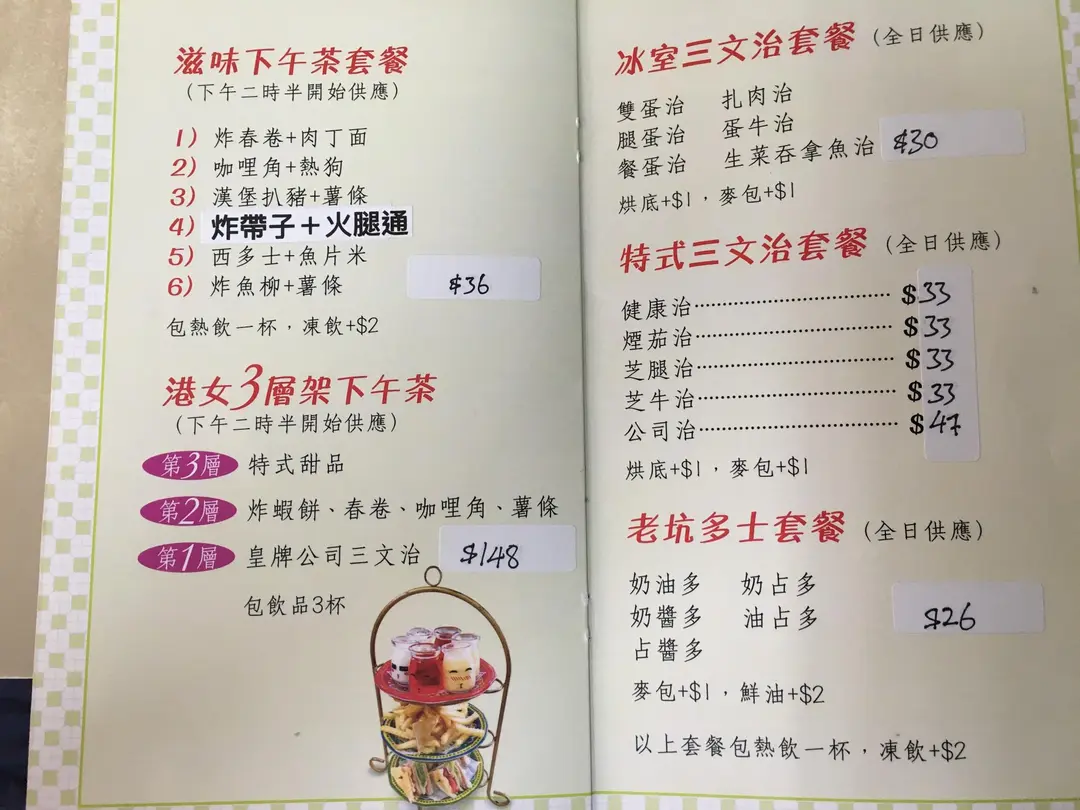 滋味下午茶套餐
(下午二時半開始供應)
1) 炸春卷+肉丁面
2) 咖哩角+熱狗
3) 漢堡扒豬+薯條
4) 炸帶子+火腿通
5) 西多士+魚片米
6) 炸魚柳+薯條
$36
包熱飲一杯，凍飲+$2
港女3層架下午茶
(下午二時半開始供應)
第3層 特式甜品
第2層 炸蝦餅、春卷、咖哩角、薯條
第1層 皇牌公司三文治 $148
包飲品3杯
冰室三文治套餐 (全日供應)
雙蛋治 扎肉治
腿蛋治 蛋牛治
餐蛋治 生菜吞拿魚治 $30
烘底+$1，麥包+$1
特式三文治套餐 (全日供應)
健康治 $33
煙茄治 $33
芝腿治 $33
芝牛治 $33
公司治 $47
烘底+$1，麥包+$1
老坑多士套餐 (全日供應)
奶油多 奶占多
奶醬多 油占多 $26
占醬多
麥包+$1，鮮油+$2
以上套餐包熱飲一杯，凍飲+$2